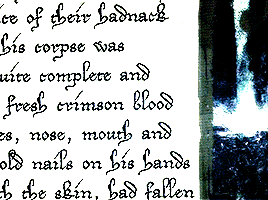 ce of their hadnack
his corpse was
uite complete and
fresh crimson blood
es, nose, mouth and
old nails on his hands
th the skin, had fallen